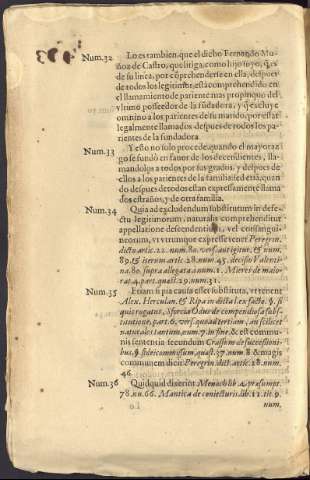 Num.32 Lo es tambien que el dicho Fernando Mu-
ñoz de Castro, que litiga, como hijo suyo, q̃ es
de su linea, por cõprehenderse en ella, despues
de todos los legitimos, està comprehendido en
el llamamiento de pariente mas propinquo del
vltimo posseedor de la fũdadora, y q̃ excluye
omnino a los parientes de su marido, por estar
legalmente llamados despues de todos los pa-
rientes de la fundadora.
Num.33 Y esto no solo procede, quando el mayoraz
go se fundò en fauor de los decendientes, lla-
mandolos a todos por sus grados, y despues de
ellos a los parientes de la familia, sed etiã, quan
do despues de todos estan expressamente llama
dos estraños, y de otra familia.
Num.34 Quia ad excludendum substitutum in defe-
ctu legitimorum, naturalis comprehenditur
appellatione descendentium, vel consangui-
neorum, vt vtrumque expresse tenet Peregrin.
dicto artic. 22. num. 80. vers. aut igitur, & num.
89. & iterum artic. 28. num. 45. decisio Valenti-
na 80. supra allegata à num. 1. Mieres de maio-
rat. 4. part. quæst. 29. num. 31.
Num.35 Etiam si pia causa esset substituta, vt tenent
Alex. Herculan. & Ripa in dicta l. ex facto. §. si
quis rogatus, Sforcia Odus de compendiosa subs-
tantiue, part. 6. vers. quæro tertium, an scilicet
naturales tantùm, num. 7. in fine, & est commu-
nis sententia secundum Crassum de successioni-
bus. §. fideicommissum, quæst. 37. num. 8. & magis
communem dicit Peregrin. dict. artic. 28. num.
46.
Num.36 Quidquid dixerint Menoch. lib. 4. præsumpt.
78. nu. 66. Mantica de coniecturis. lib. 11. tit. 9.
num.